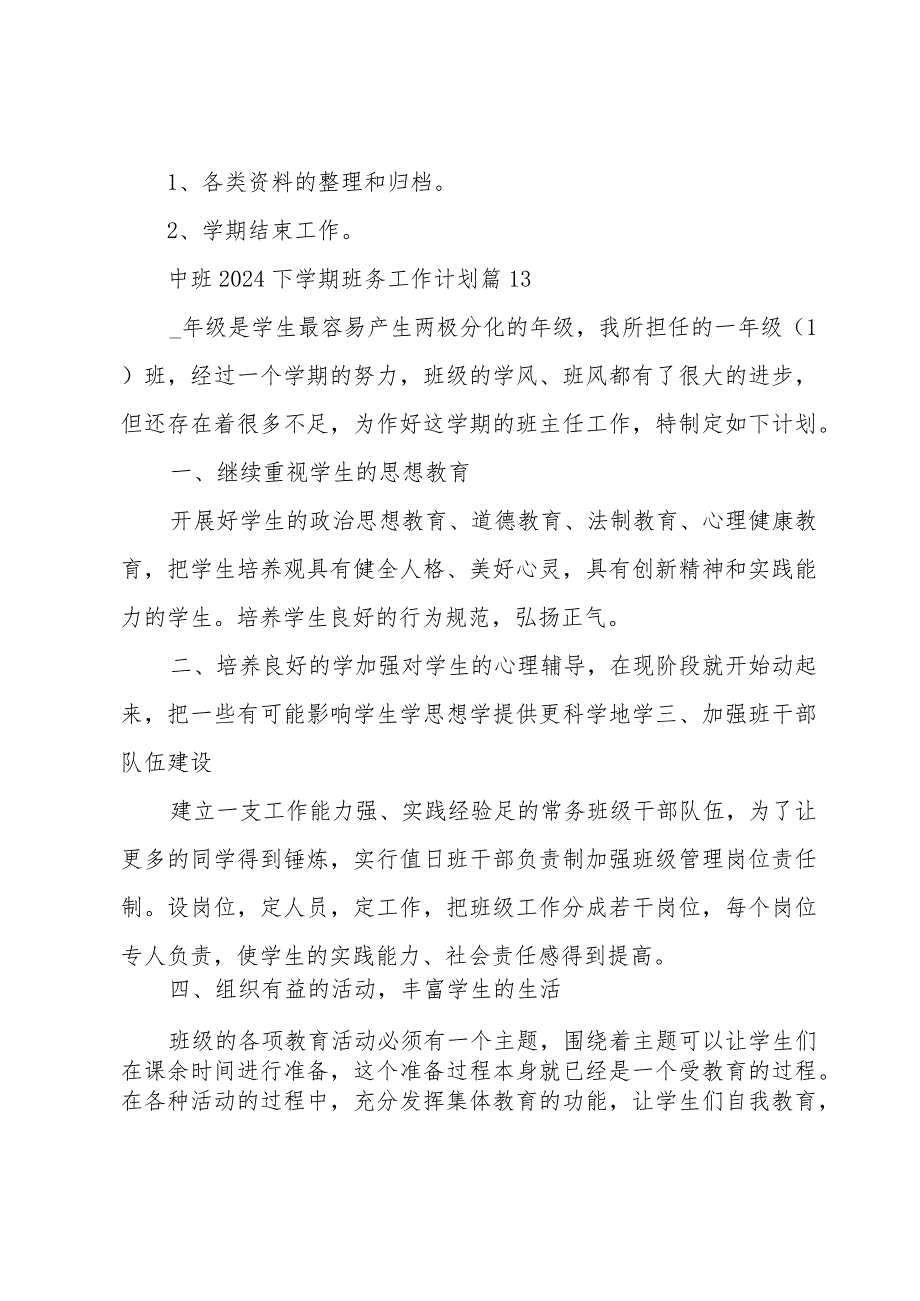 1、各类资料的整理和归档。
2、学期结束工作。
中班2024下学期班务工作计划篇13
_年级是学生最容易产生两极分化的年级，我所担任的一年级（1
）班，经过一个学期的努力，班级的学风、班风都有了很大的进步，
但还存在着很多不足，为作好这学期的班主任工作，特制定如下计划。
一、继续重视学生的思想教育
开展好学生的政治思想教育、道德教育、法制教育、心理健康教
育，把学生培养观具有健全人格、美好心灵，具有创新精神和实践能
力的学生。培养学生良好的行为规范，弘扬正气。
二、培养良好的学加强对学生的心理辅导，在现阶段就开始动起
来，把一些有可能影响学生学思想学提供更科学地学三、加强班干部
队伍建设
建立一支工作能力强、实践经验足的常务班级干部队伍，为了让
更多的同学得到锤炼，实行值日班干部负责制加强班级管理岗位责任
制。设岗位，定人员，定工作，把班级工作分成若干岗位，每个岗位
专人负责，使学生的实践能力、社会责任感得到提高。
四、组织有益的活动，丰富学生的生活
班级的各项教育活动必须有一个主题，围绕着主题可以让学生们
在课余时间进行准备，这个准备过程本身就已经是一个受教育的过程。
在各种活动的过程中，充分发挥集体教育的功能，让学生们自我教育，